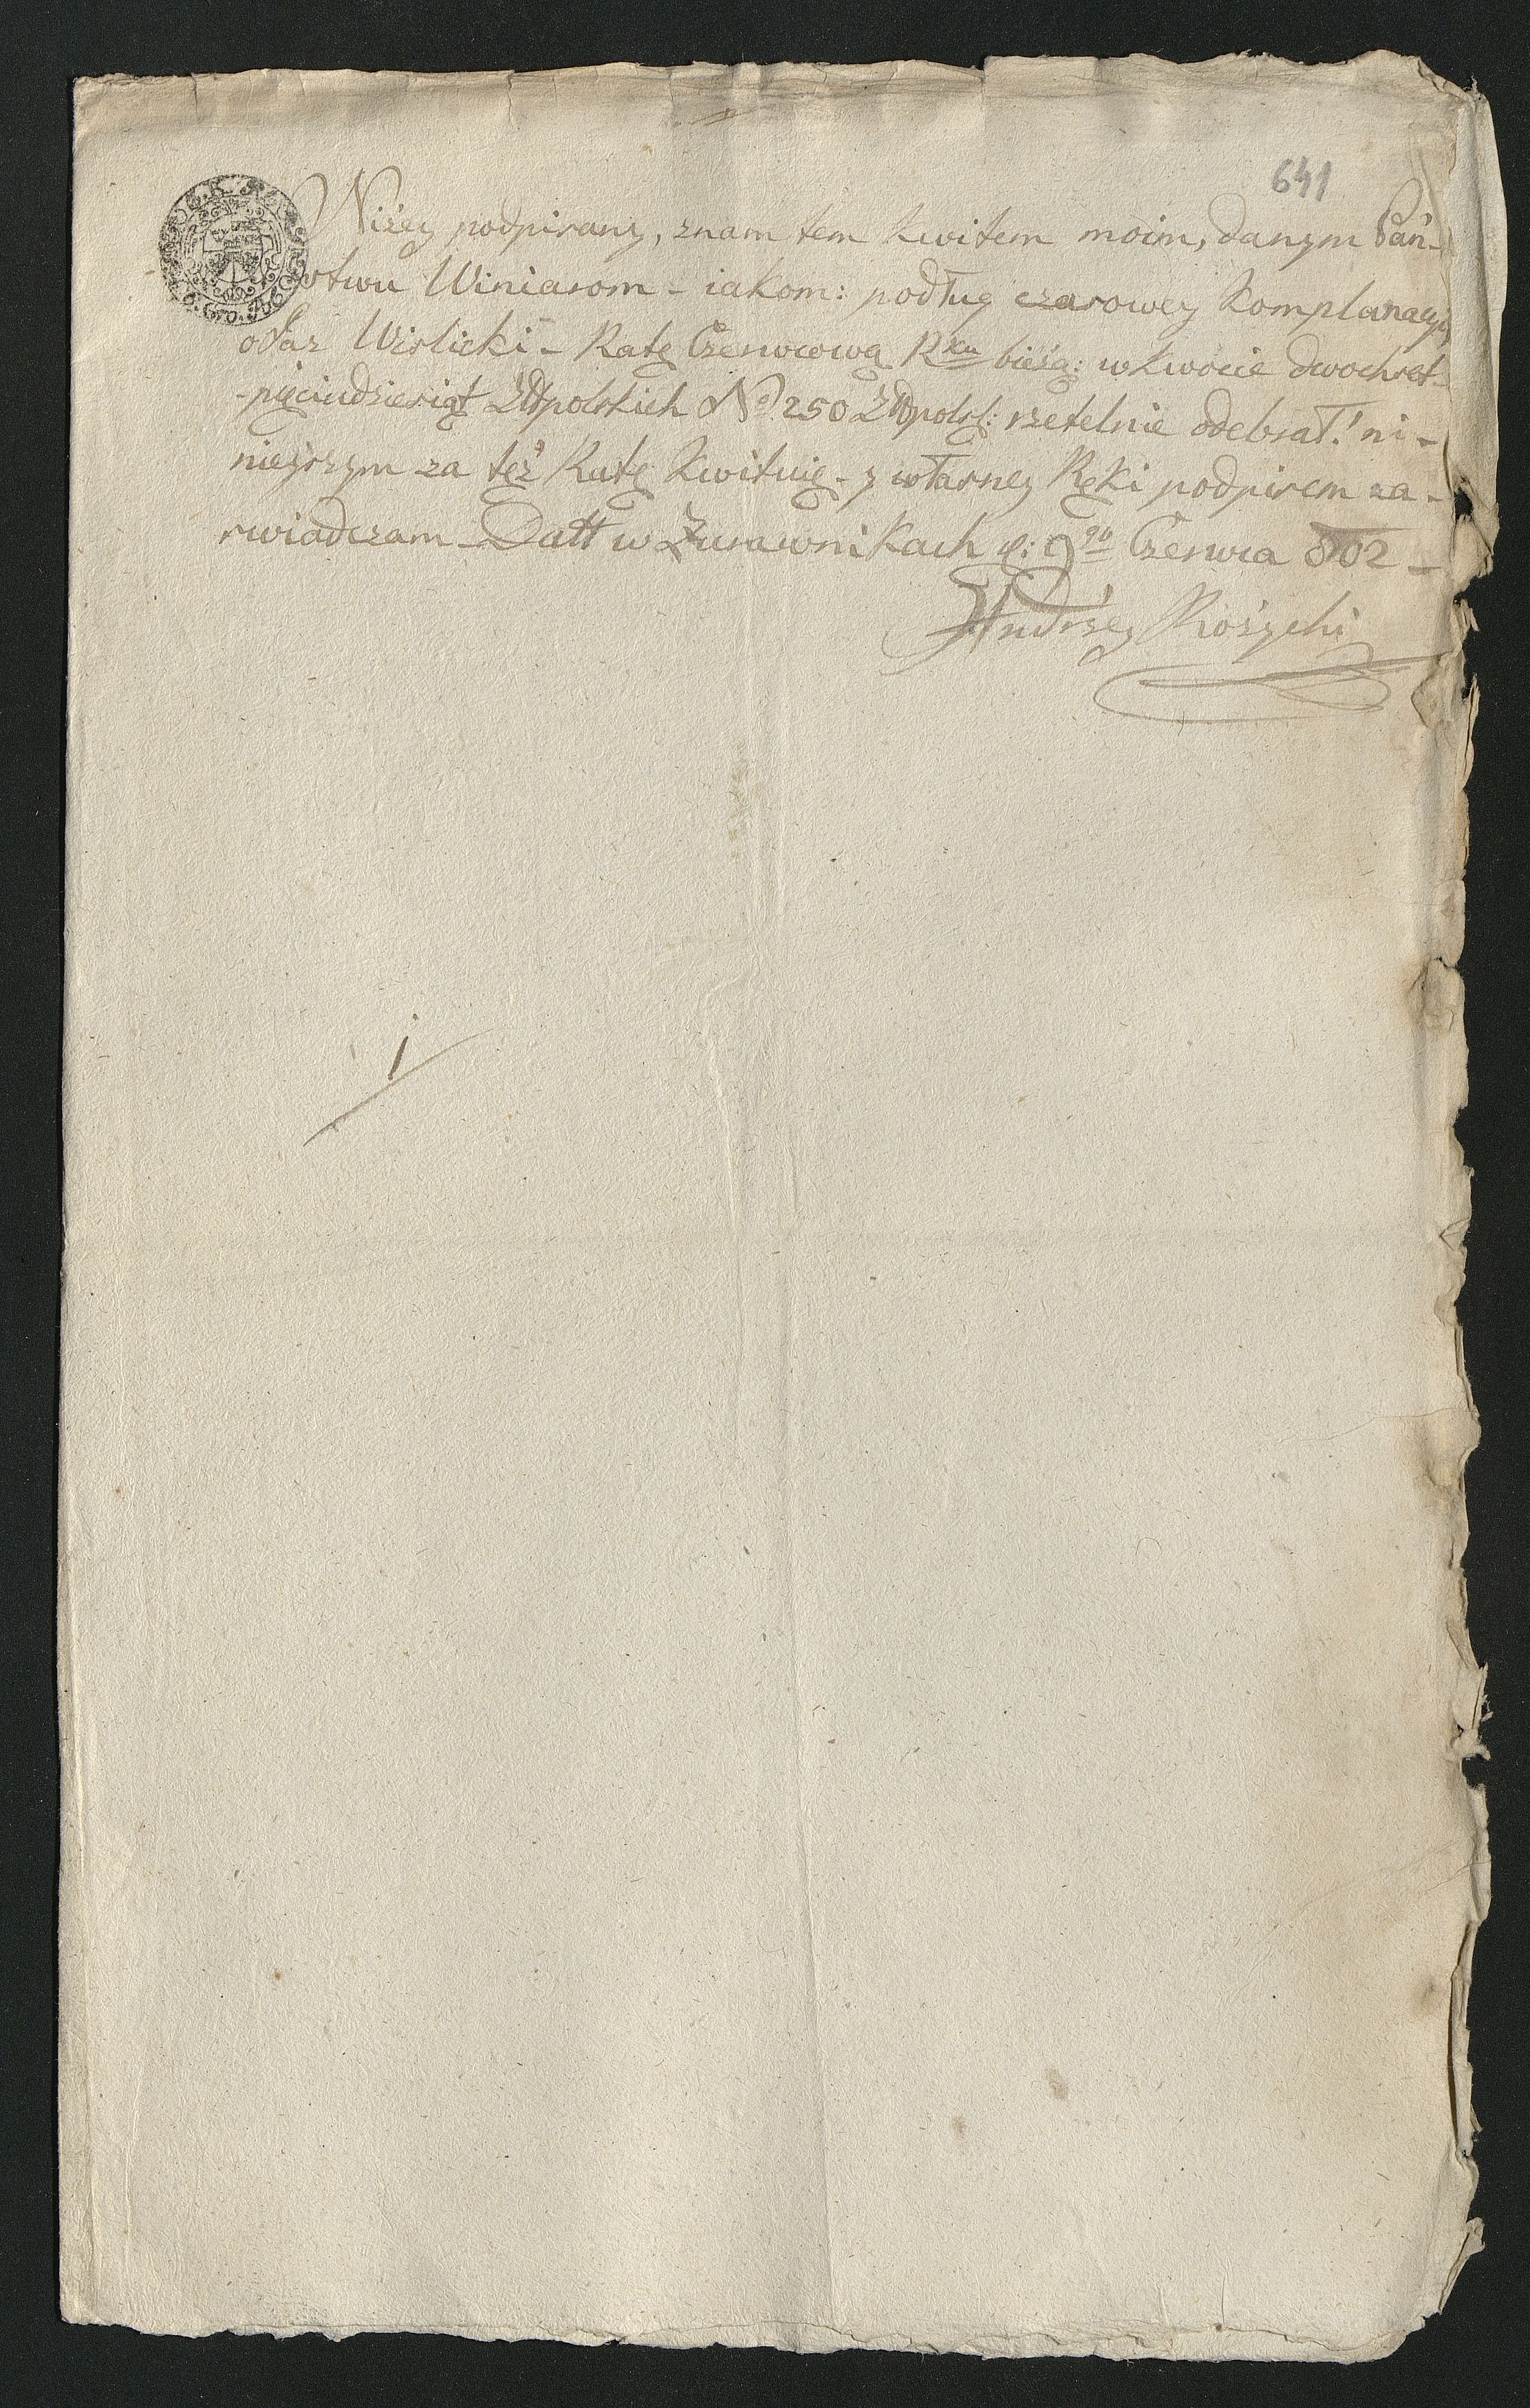 641
Niżey podpisany, znam tem kwitem moim, danym Pań-
stwu Winiarom - iakom: podług czasowey Komplanacyi
Wislicki - Ratę Czerwcową Rku bieżą: w kwocie dwochset-
-pięciudziesiąt Złłpolskich No 250 Złłpolsk: rzetelnie odebrał! ni-
nieyszym za też Ratę kwituię - y własney Ręki podpisem za-
swiadczam - Datt w Zurawnikach d: 9go Czerwca 802 -
Andrzey Rożycki
1